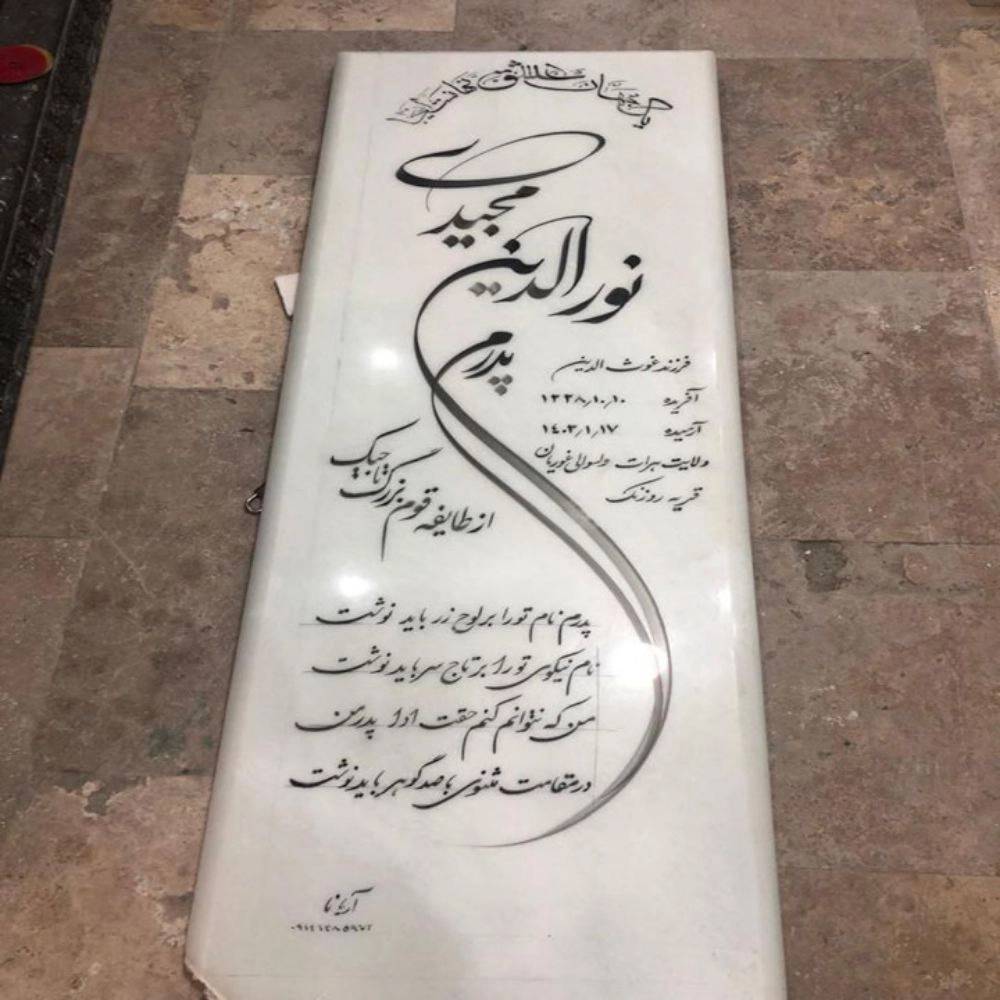 یک جهان عشق
مجیدی
نورالدین
پدرم
فرزند غوث الدین
آفریده ۱۳۳۸٫۱۰٫۱۰
آرمیده ۱۴۰۳٫۱٫۱۷
ولایت هرات ولسوالی غوریان
قریه روزنک
از طایفه قوم بزرگ تاجیک
پدرم نام تو را بر لوح زر باید نوشت
نام نیکوی تو را بر تاج سر باید نوشت
من که نتوانم کنم حقت ادا پدر من
در مقامت مثنوی با صد گوهر باید نوشت
آریانا